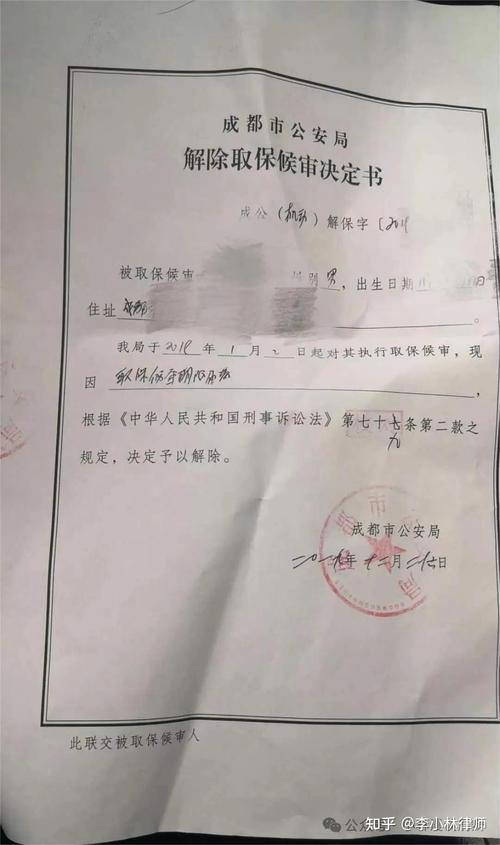 成都市公安局
解除取保候审决定书
成公（机动）解保字〔2019
被取保候审 性别男，出生日期 日
住址成都 。
我局于2019年1月2日起对其执行取保候审，现
因取保候审期限届满，
根据《中华人民共和国刑事诉讼法》第七十七条第二款之
九
规定，决定予以解除。
成都市公安局
二〇一九年十二月二十六日
此联交被取保候审人
知乎 @李小林律师
公众